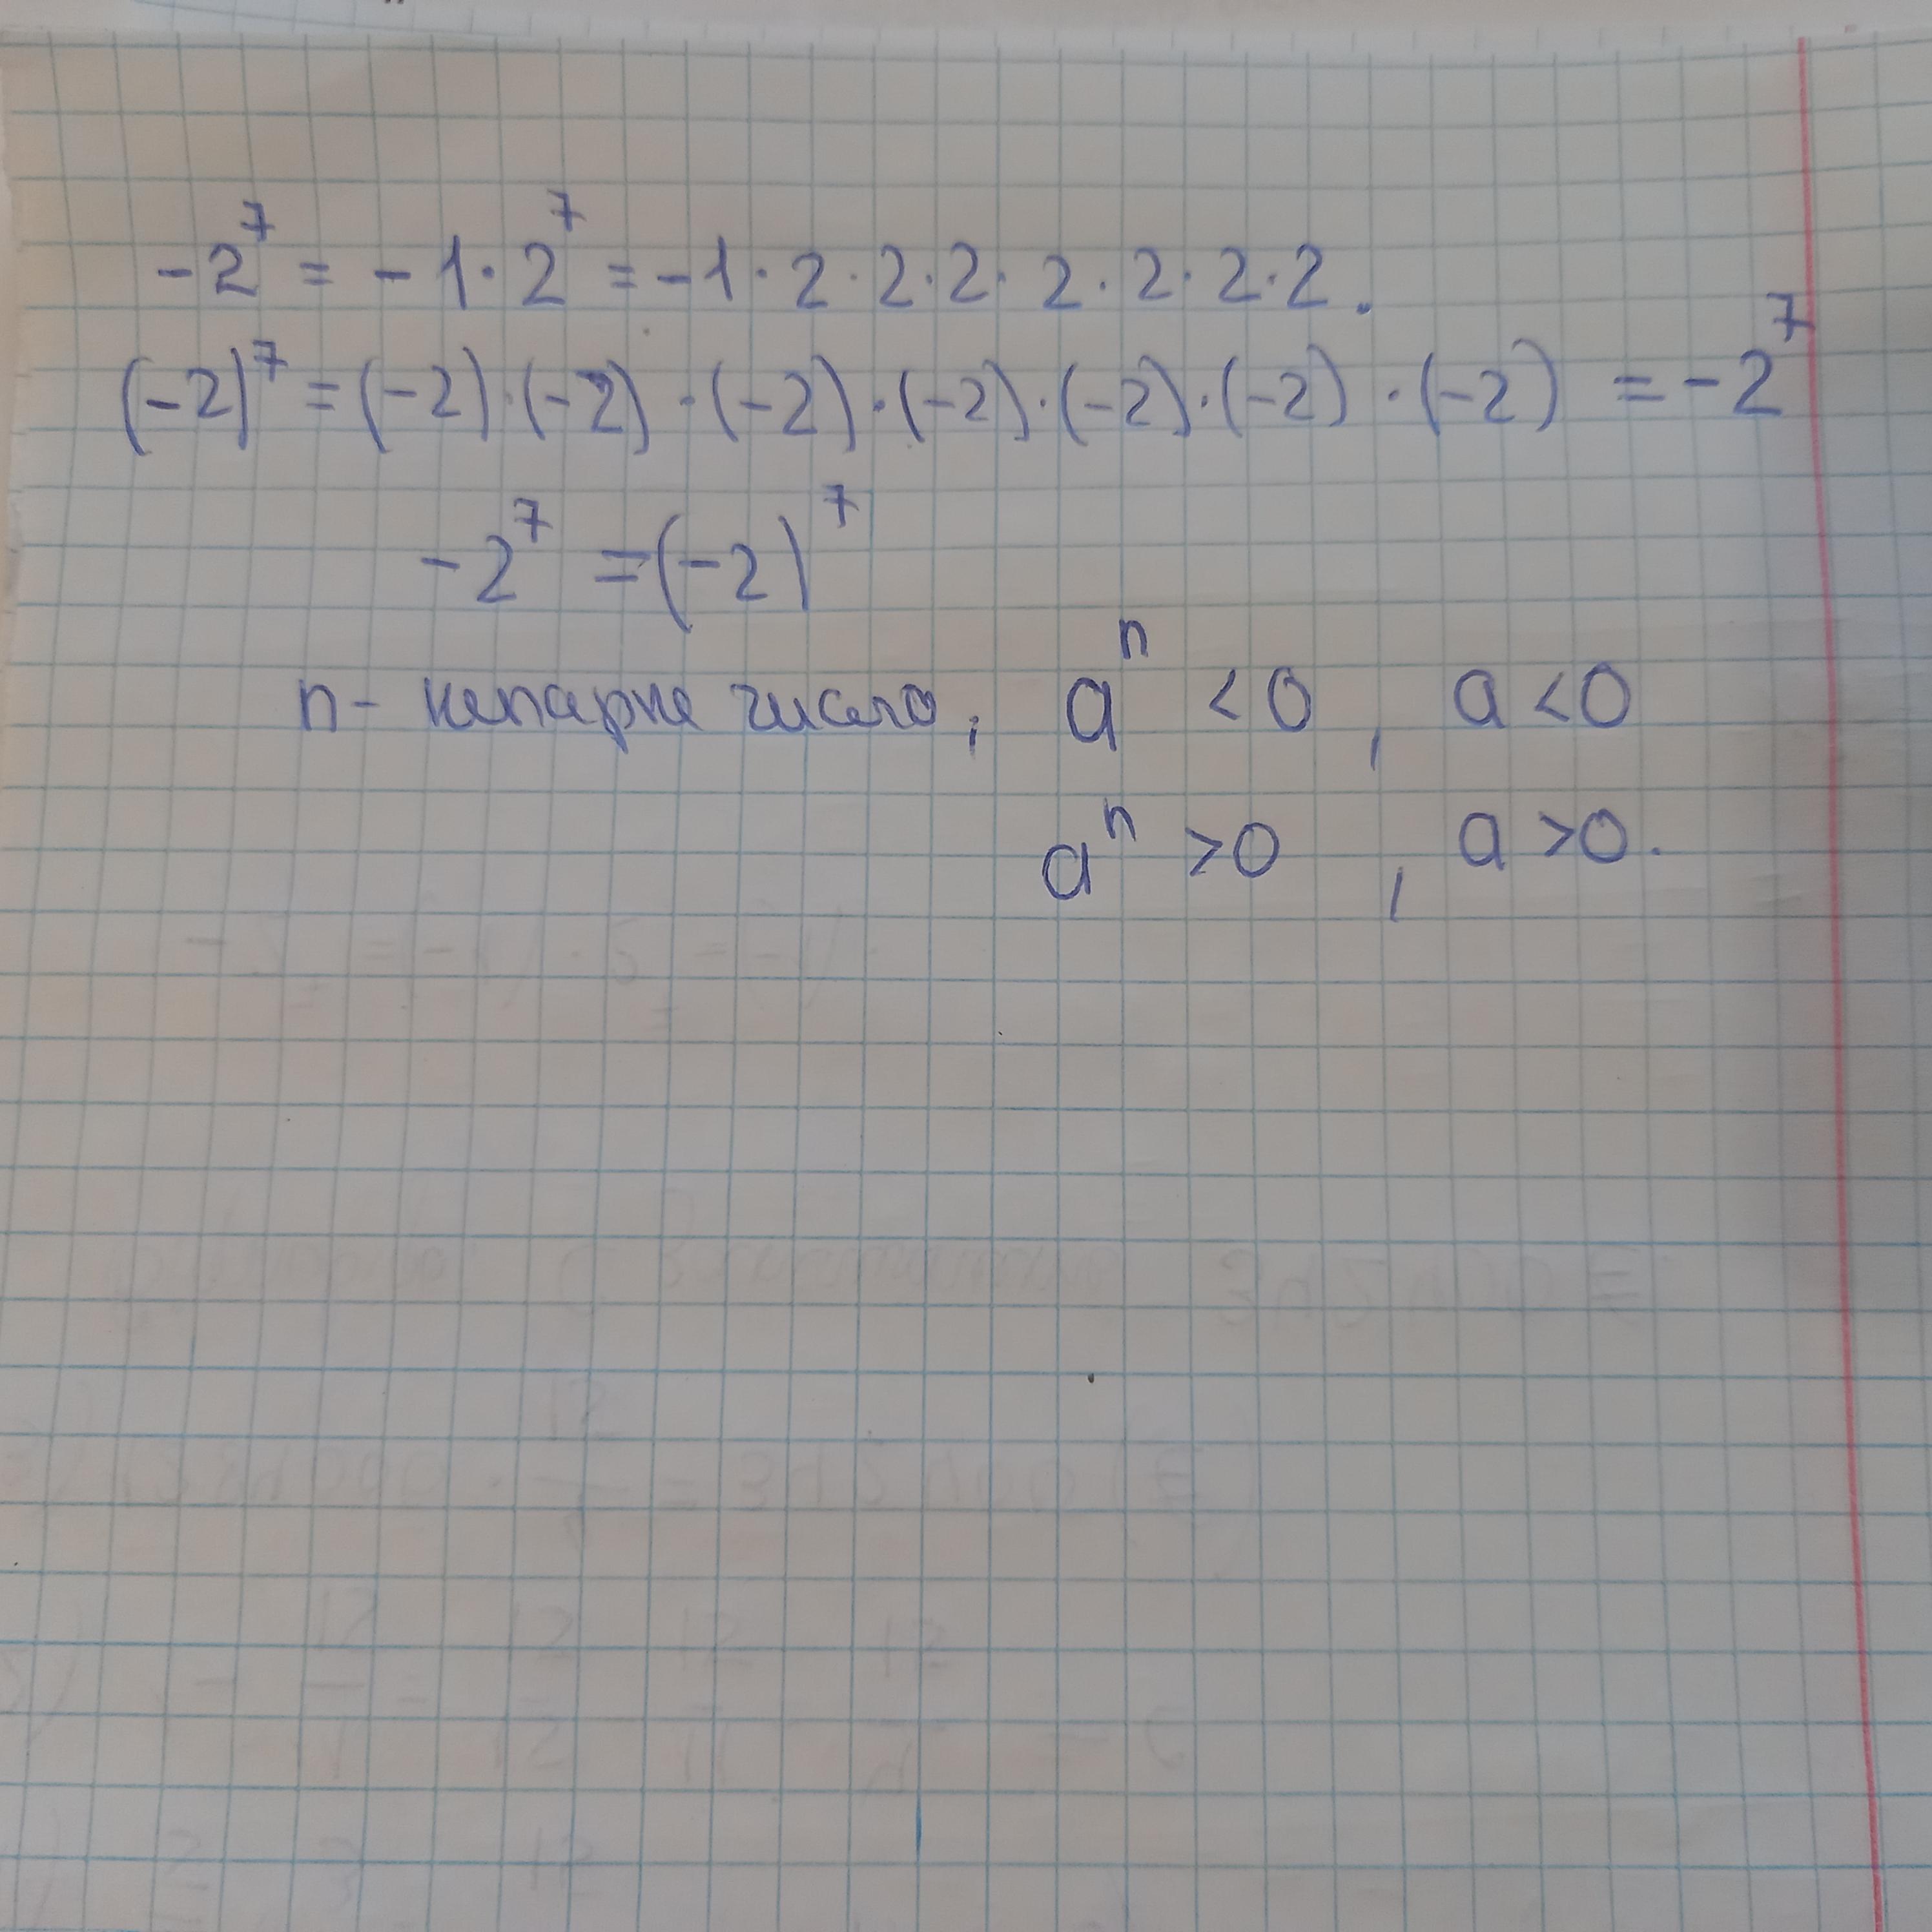 -2⁷ = -1·2⁷ = -1·2·2·2·2·2·2·2.
(-2)⁷ = (-2)·(-2)·(-2)·(-2)·(-2)·(-2)·(-2) = -2⁷
-2⁷ = (-2)⁷
n - непарне число; aⁿ < 0, a < 0
aⁿ > 0, a > 0.